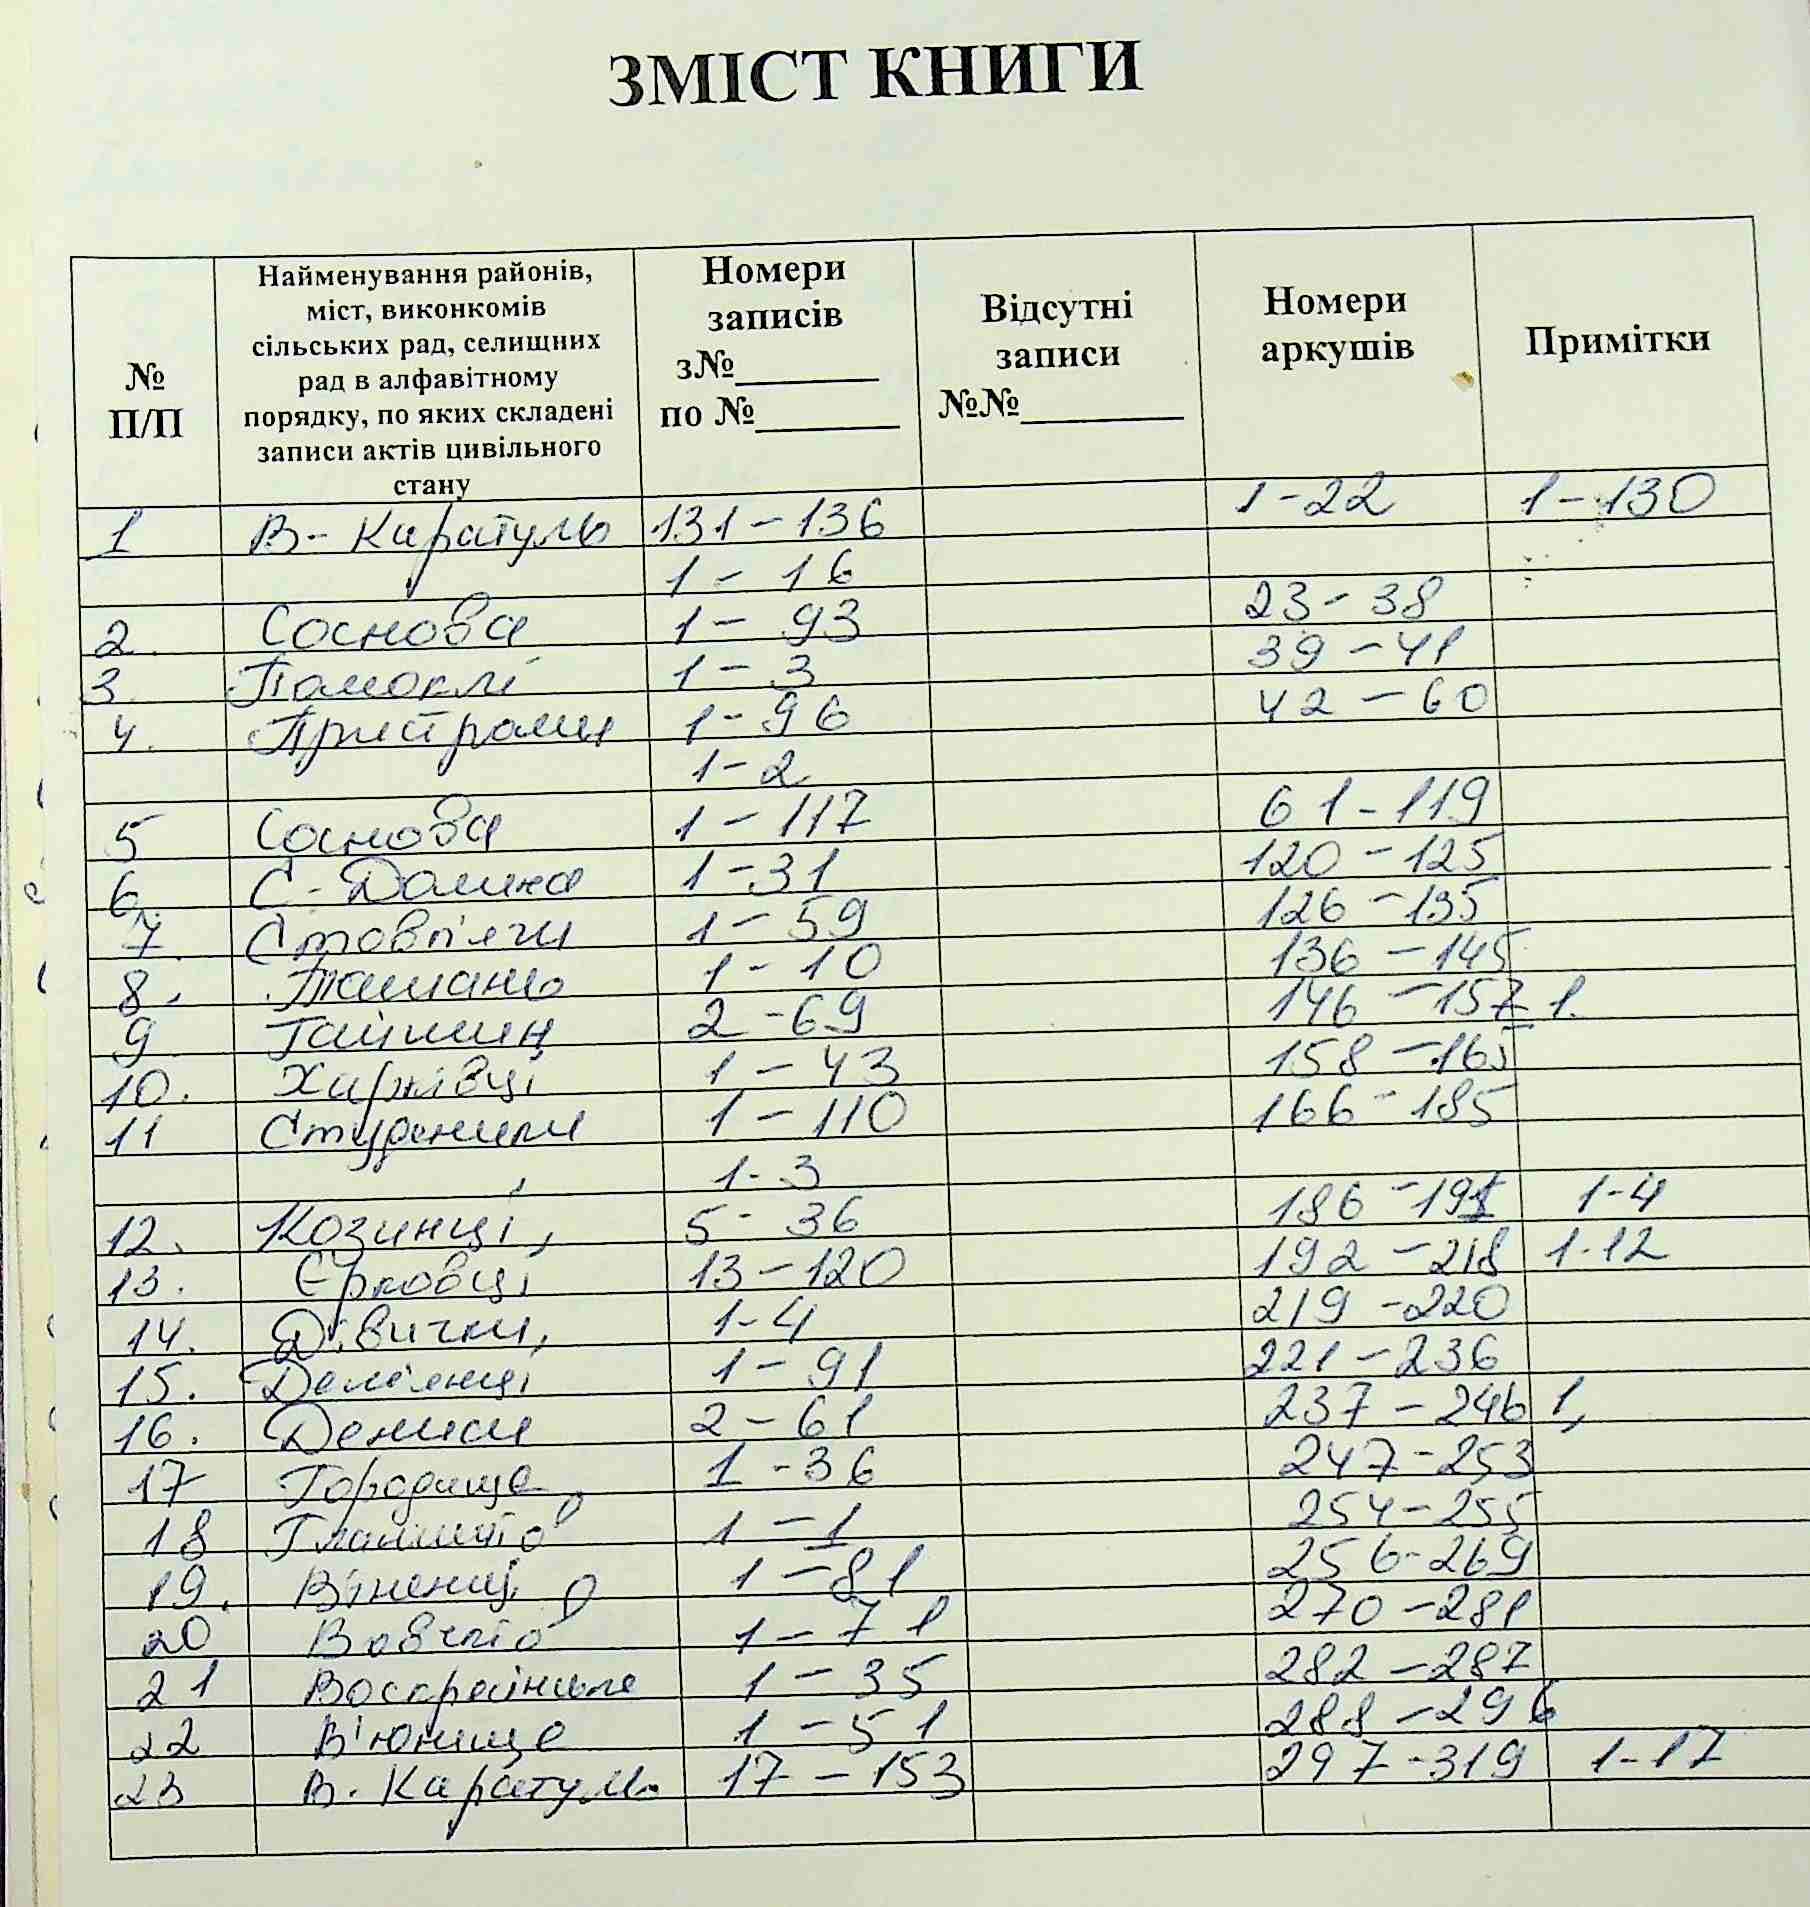 ЗМІСТ КНИГИ
№ П/П
Найменування районів, міст, виконкомів сільських рад, селищних рад в алфавітному порядку, по яких складені записи актів цивільного стану
Номери записів з№________ по №________
Відсутні записи №№_________
Номери аркушів
Примітки
1 В-Каратуль 131-136 1-22 1-130
1-16
2. Соснова 1-93 23-38
3. Помоклі 1-3 39-41
4. Пристроми 1-96 42-60
1-2
5 Соснова 1-117 61-119
6. С-Долина 1-31 120-125
7. Стовп'яги 1-59 126-135
8. Ташань 1-10 136-145
9 Гайшин 2-69 146-157 1.
10. Харківці 1-43 158-165
11 Студеники 1-110 166-185
1-3
12. Козинці, 5-36 186-191 1-4
13. Єрковці 13-120 192-218 1-12
14. Дівички, 1-4 219-220
15. Дем'янці 1-91 221-236
16. Дениси 2-61 237-246 1,
17 Городище 1-36 247-253
18 Гланишів 1-1 254-255
19. Віненці 1-81 256-269
20 Вовчків 1-71 270-281
21 Воскресінське 1-35 282-287
22 В'юнище 1-51 288-296
23 В. Каратуль 17-153 297-319 1-17